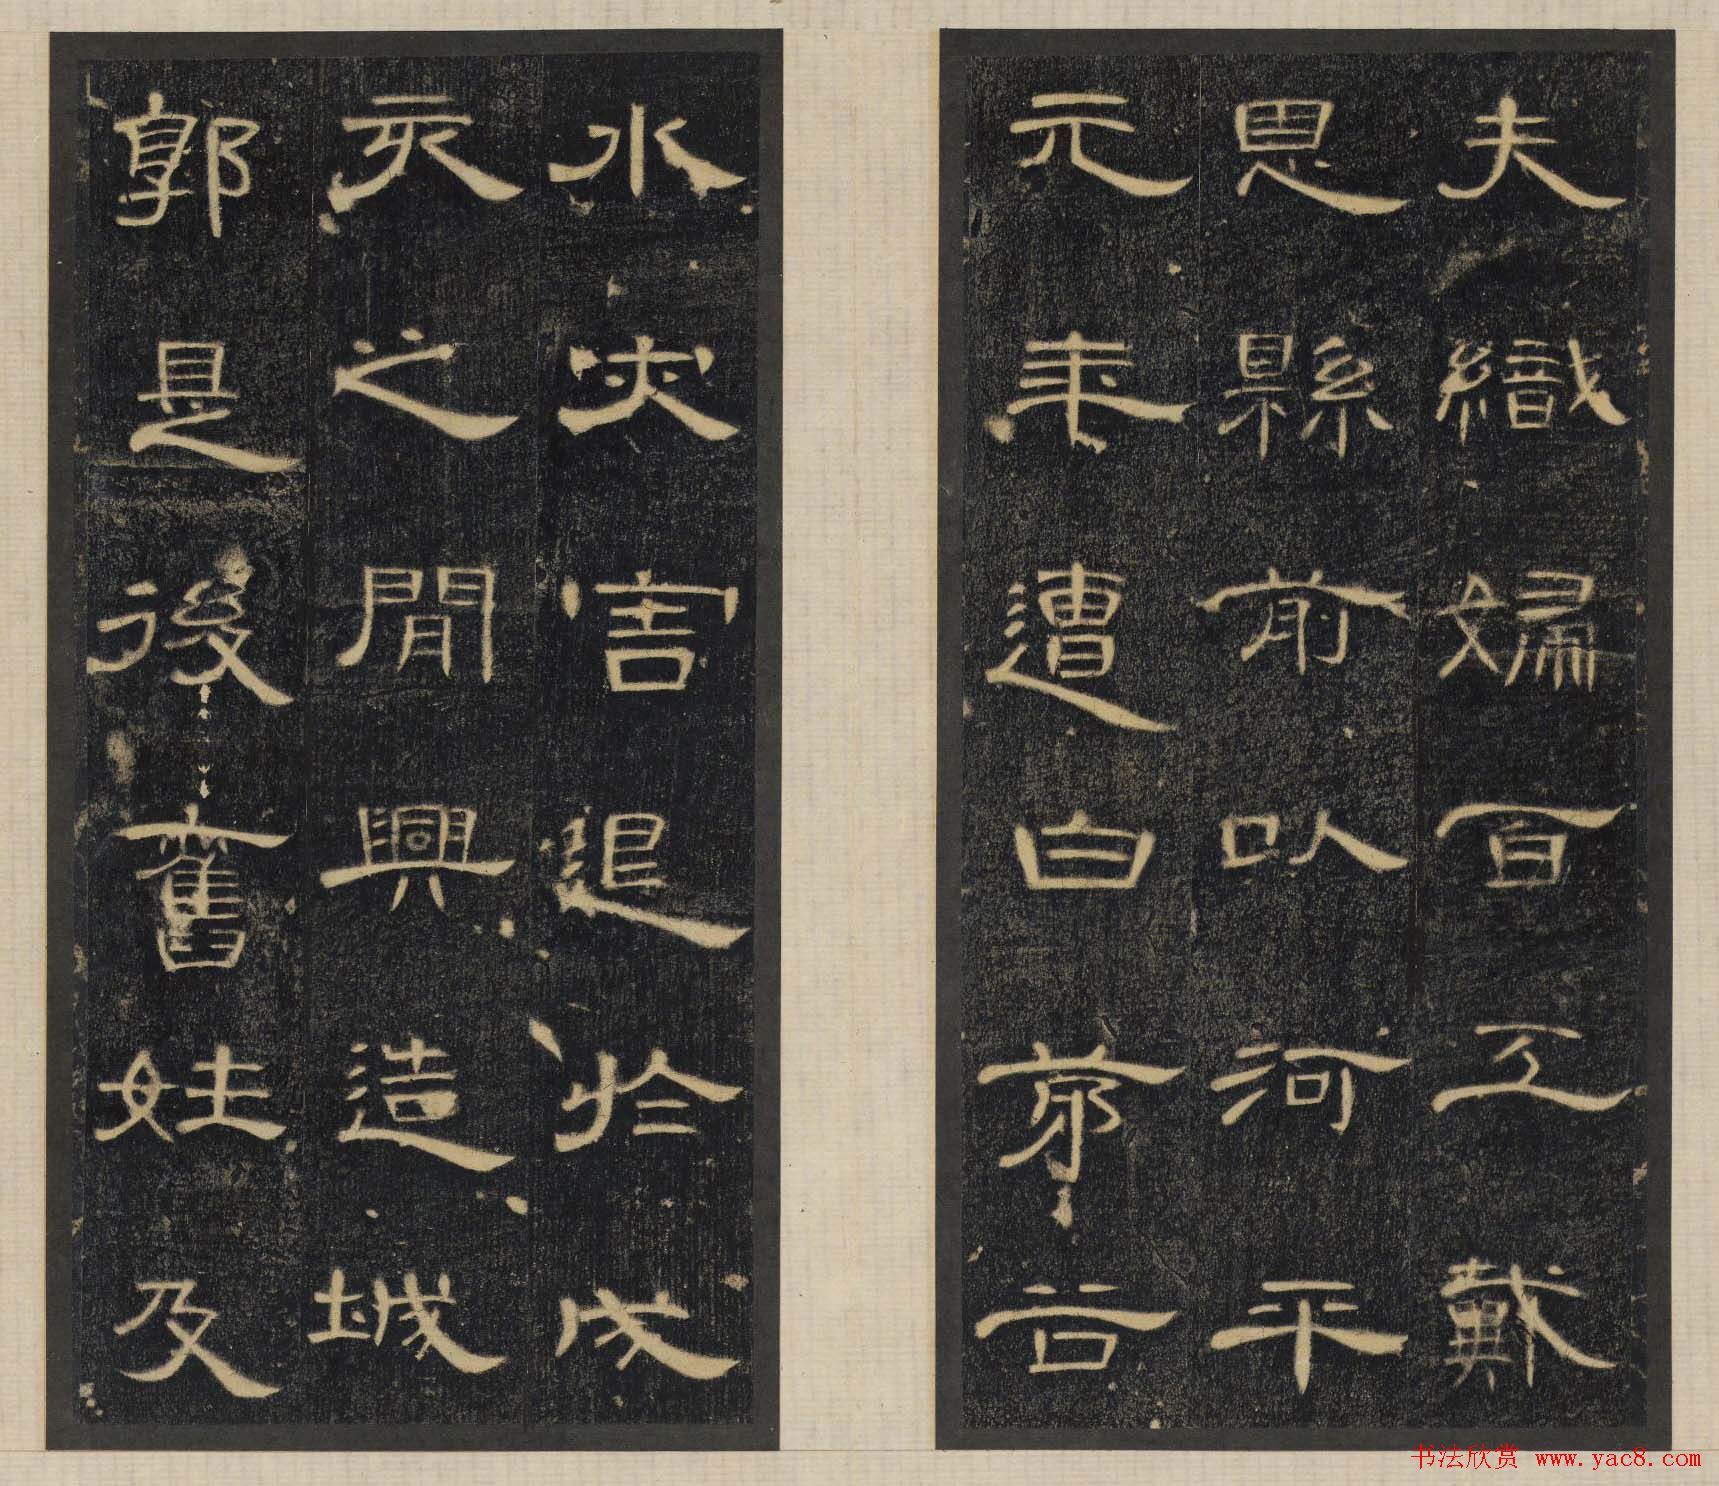 夫織婦百工戴
恩縣前以河平
元年遭白茅谷
水灾害退於戌
亥之閒興造城
郭是後舊姓及
书法欣赏 www.yac8.com